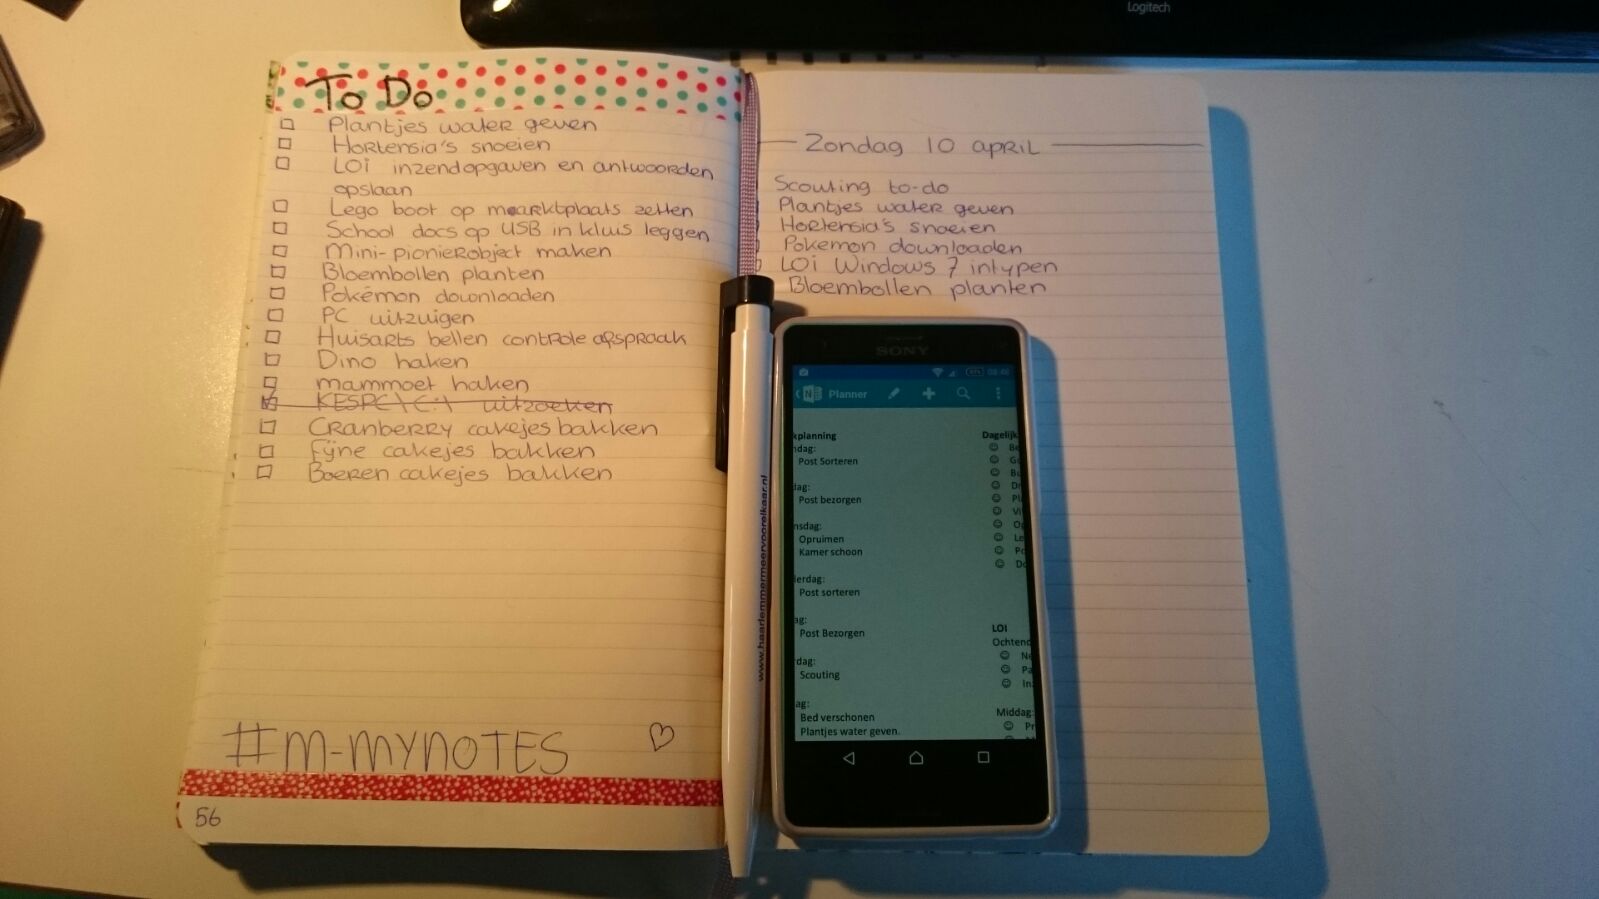 Logitech
To Do
Plantjes water geven
Hortensia's snoeien
LOI inzendopgaven en antwoorden
opslaan
Lego boot op marktplaats zetten
School docs op USB in kluis leggen
Mini-pionierobject maken
Bloembollen planten
Pokémon downloaden
PC uitzuigen
Huisarts bellen controle afspraak
Dino haken
mammoet haken
uitzoeken
Cranberry cakejes bakken
Fijne cakejes bakken
Boeren cakejes bakken
#m-mynotes
56
Zondag 10 april
Scouting to-do
Plantjes water geven
Hortensia's snoeien
Pokemon downloaden
LOI Windows 7 intypen
Bloembollen planten
www.haarlemmermeervoorelkaar.nl
SONY
Planner
kplanning
ndag:
Post Sorteren
dag:
Post bezorgen
nsdag:
Opruimen
Kamer schoon
erdag:
Post sorteren
ag:
Post Bezorgen
rdag:
Scouting
ag:
Bed verschonen
Plantjes water geven.
Dagelijk
Be
Dr
Pl
Vi
Le
LOI
Ochtend
Ne
Pa
In
Middag:
Pr